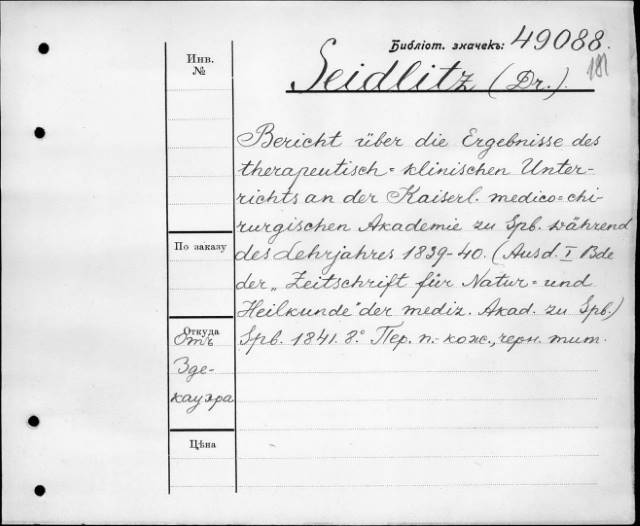 Библіот. значекъ: 49088.
181
Инв. №
Seidlitz (Dr.).
Bericht über die Ergebnisse des
therapeutisch=klinischen Unter-
richts an der Kaiserl. medico=chi-
rurgischen Akademie zu Spb. während
По заказу
des Lehrjahres 1839-40. (Aus d. I Bde
der „Zeitschrift für Natur= und
Heilkunde" der mediz. Akad. zu Spb.)
Откуда
Отъ
Spb. 1841. 8.° Пер. п.-кож., черн. тит.
Зде-
кауэра
Цѣна